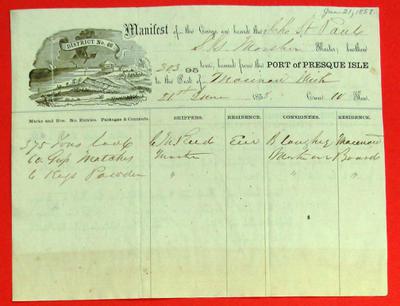 June 21, 1858.
Manifest of the Cargo on board the Schr St Paul
DISTRICT No. 10
Master, burthen
303 95 tons, bound from the PORT OF PRESQUE ISLE
to the Port of Macinaw Mich
21st June 1858. Crew 10 Men.
Marks and Nos. No. Entries. Packages & Contents. SHIPPERS. RESIDENCE. CONSIGNEES. RESIDENCE.
375 Tons Coal C M Reed Erie Macinaw
60 Matches Master " Master on Board
6 Kegs Powder " " " "